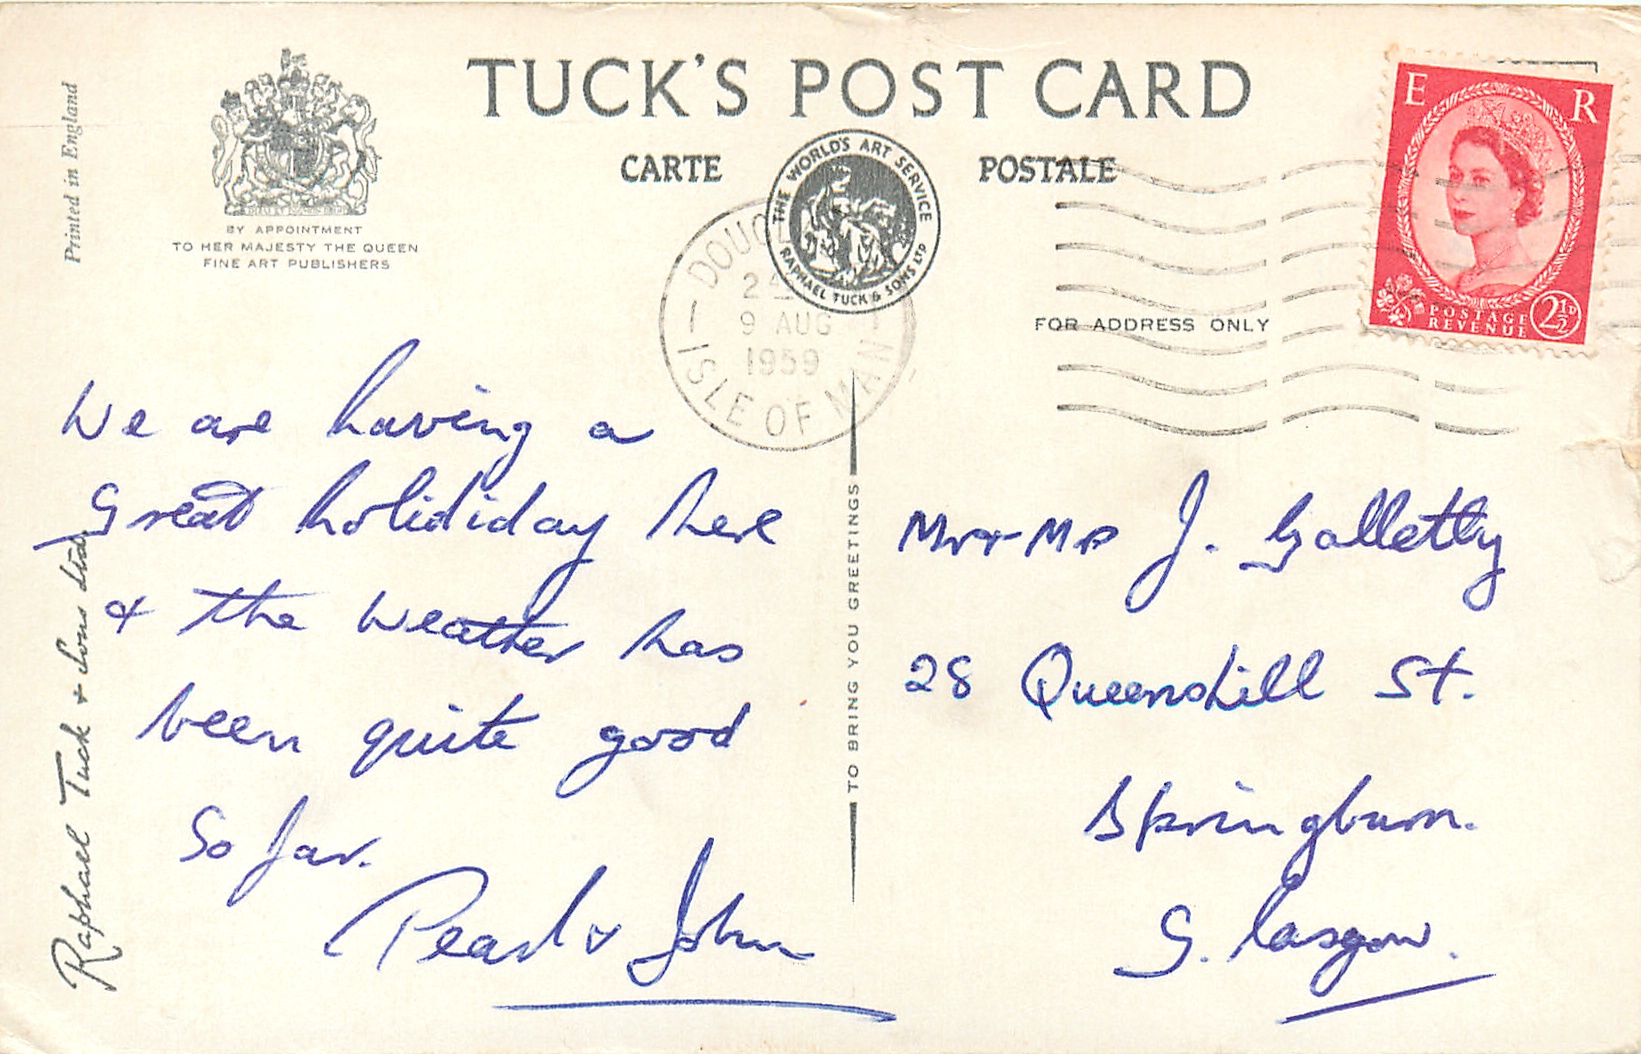 Printed in England
BY APPOINTMENT
TO HER MAJESTY THE QUEEN
FINE ART PUBLISHERS
TUCK'S POST CARD
CARTE POSTALE
THE WORLD'S ART SERVICE
RAPHAEL TUCK & SONS LTD
9 AUG
1959
ISLE OF MAN
FOR ADDRESS ONLY
E R
POSTAGE
REVENUE
2½D
We are having a
Great holididay here
& the weather has
been quite good
So far.
Pearl & John
Raphael Tuck & Sons Ltd
TO BRING YOU GREETINGS
J. Galletly
28 Queenshill St.
Springburn.
Glasgow.